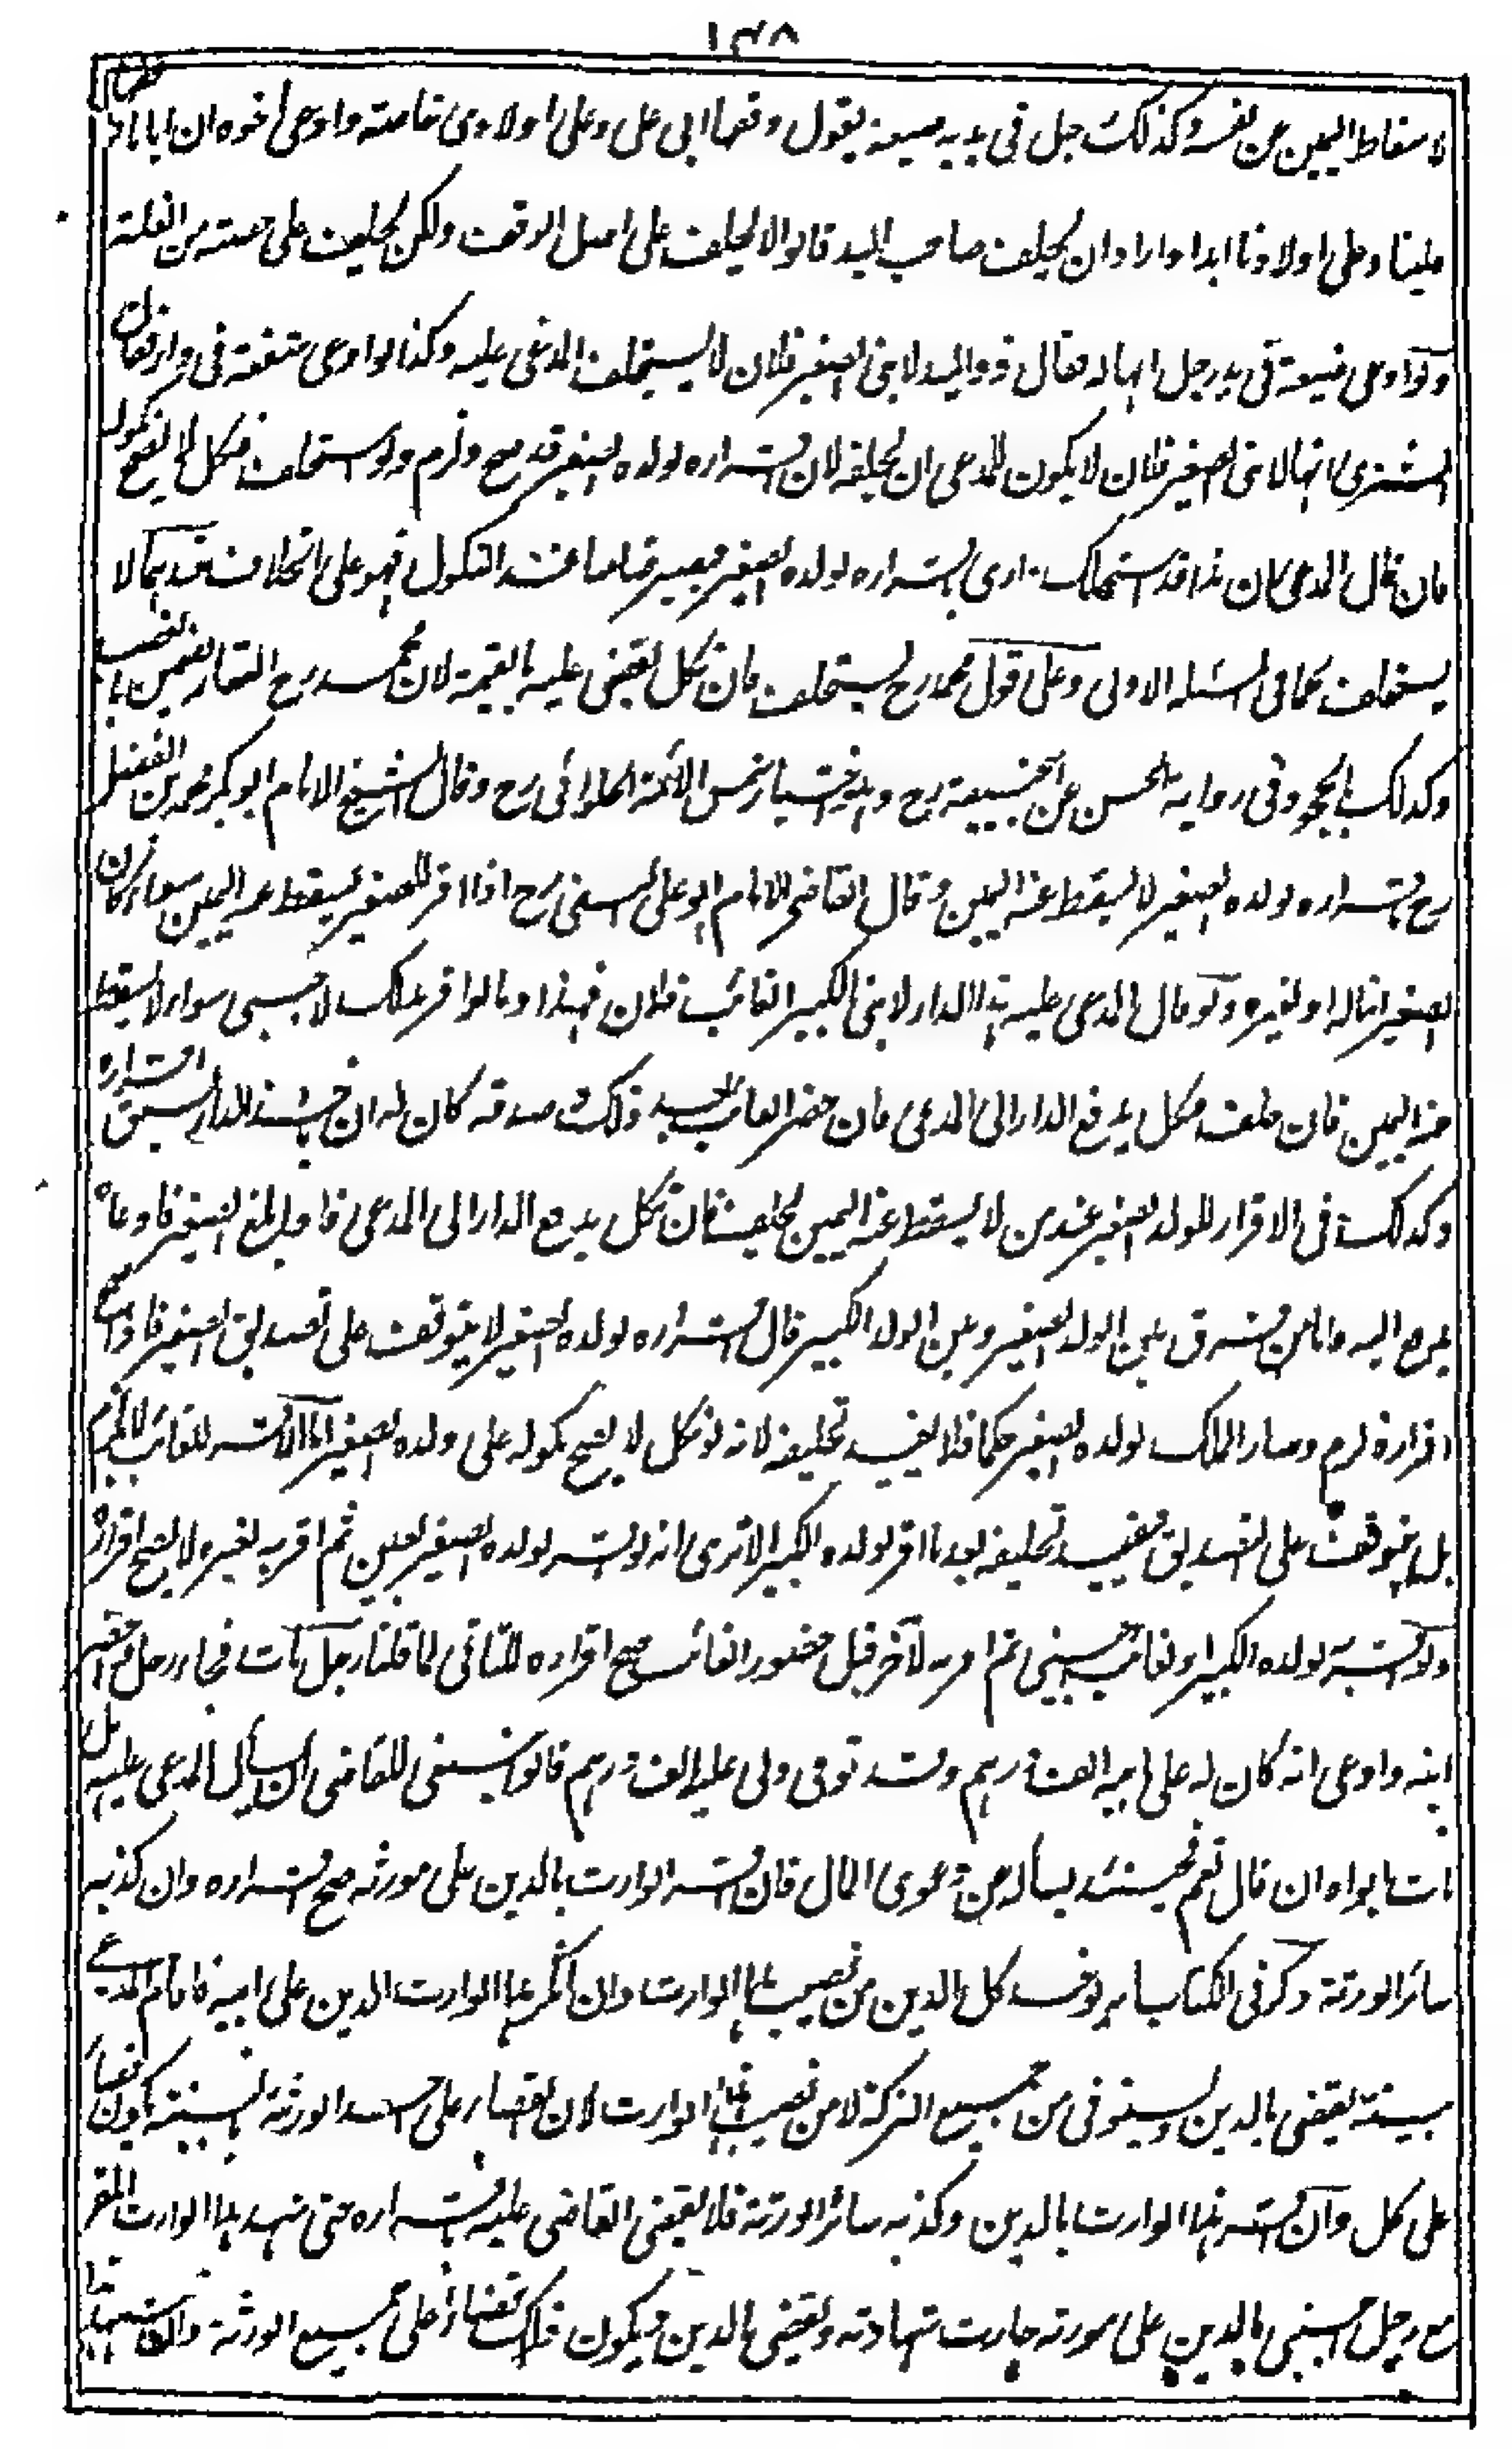 ١٤٨
لاسقاط اليمين عن نفسه وكذلك رجل في يديه ضيعة يقول وقفها ابي علي وعلى اولادي خاصة وادعى اخوه ان ابانا وقفها
علينا وعلى اولادنا ابدا واراد ان يحلف صاحب اليد قالوا لا يحلف على اصل الوقف ولكن يحلف على حصته من الغلة
ولو ادعى ضيعة في يد رجل انها له فقال ذو اليد لابني الصغير فلان لا يستحلف المدعى عليه وكذا لو ادعى شفعة في دار فقال
المشتري انها لابني الصغير فلان لا يكون للمدعي ان يحلفه لان اقراره لولده الصغير قد صح ولزم ولو استحلف فنكل لا يصح نكوله
فان قال المدعي ان هذا قد استهلك داري باقراره لولده الصغير فيصير ضامنا عند النكول فهو على الخلاف عندهما لا
يستحلف كما في المسئلة الاولى وعلى قول محمد رح يستحلف فان نكل يقضى عليه بالقيمة لان عند محمد رح العقار يضمن بالغصب
وكذلك بالجحود في رواية الحسن عن ابي حنيفة رح وبه اختيار شمس الائمة الحلوائي رح وقال الشيخ الامام ابو بكر محمد بن الفضل
رح باقراره لولده الصغير لا يسقط عنه اليمين وقال القاضي الامام ابو علي النسفي رح اذا اقر للصغير يسقط عنه اليمين سواء كان
الصغير ابنا له او لغيره ولو قال المدعى عليه هذا الدار لابني الكبير الغائب فلان فهذا وما لو اقر بملك لاجنبي سواء لا يسقط
عنه اليمين فان حلف فنكل يدفع الدار الى المدعي فان حضر الغائب بعد ذلك وصدقه كان له ان ياخذ الدار لسبق اقراره
وكذلك في الاقرار للولد الصغير عند من لا يسقط عنه اليمين يحلف فان نكل يدفع الدار الى المدعي فاذا بلغ الصغير فادعاه
يدفع اليه واما من فرق بين الولد الصغير وبين الولد الكبير قال اقراره لولده الصغير لا يتوقف على تصديق الصغير فاذا صح
اقراره لزم وصار الملك لولده الصغير حكما فلا يفيد تحليفه لانه لو نكل لا يصح نكوله على ولده الصغير اما الاقرار للغائب لا يلزم
بل يتوقف على التصديق فيفيد تحليفه بعد ما اقر لولده الكبير الا ترى انه لو اقر لولده الصغير بعين ثم اقر به لغيره لا يصح اقراره
ولو اقر به لولده الكبير او لغائب اجنبي ثم اقر به لآخر قبل حضور الغائب صح اقراره للثاني لما قلنا رجل مات فجاء رجل واحضر
ابنه وادعى انه كان له على ابيه الف درهم وقد توفي ولي عليه الف درهم قالوا ينبغي للقاضي ان يسأل المدعى عليه هل
مات ابواه ان قال نعم فحينئذ يسأله عن دعوى المال فان اقر الوارث بالدين على مورثه صح اقراره وان كذبه
سائر الورثة ذكر في الكتاب انه يؤخذ كل الدين من نصيب هذا الوارث وان انكر هذا الوارث الدين على ابيه فاقام المدعي
بينة يقضى بالدين ويستوفى من جميع التركة لا من نصيب هذا الوارث لان القضاء على احد الورثة بالبينة يكون قضاء
على كل وان اقر هذا الوارث بالدين وكذبه سائر الورثة فلا يقضي القاضي عليه باقراره حتى شهد هذا الوارث المقر
مع رجل اجنبي بالدين على مورثه جازت شهادته ويقضى بالدين فيكون ذلك قضاء على جميع الورثة وان شهد هذا